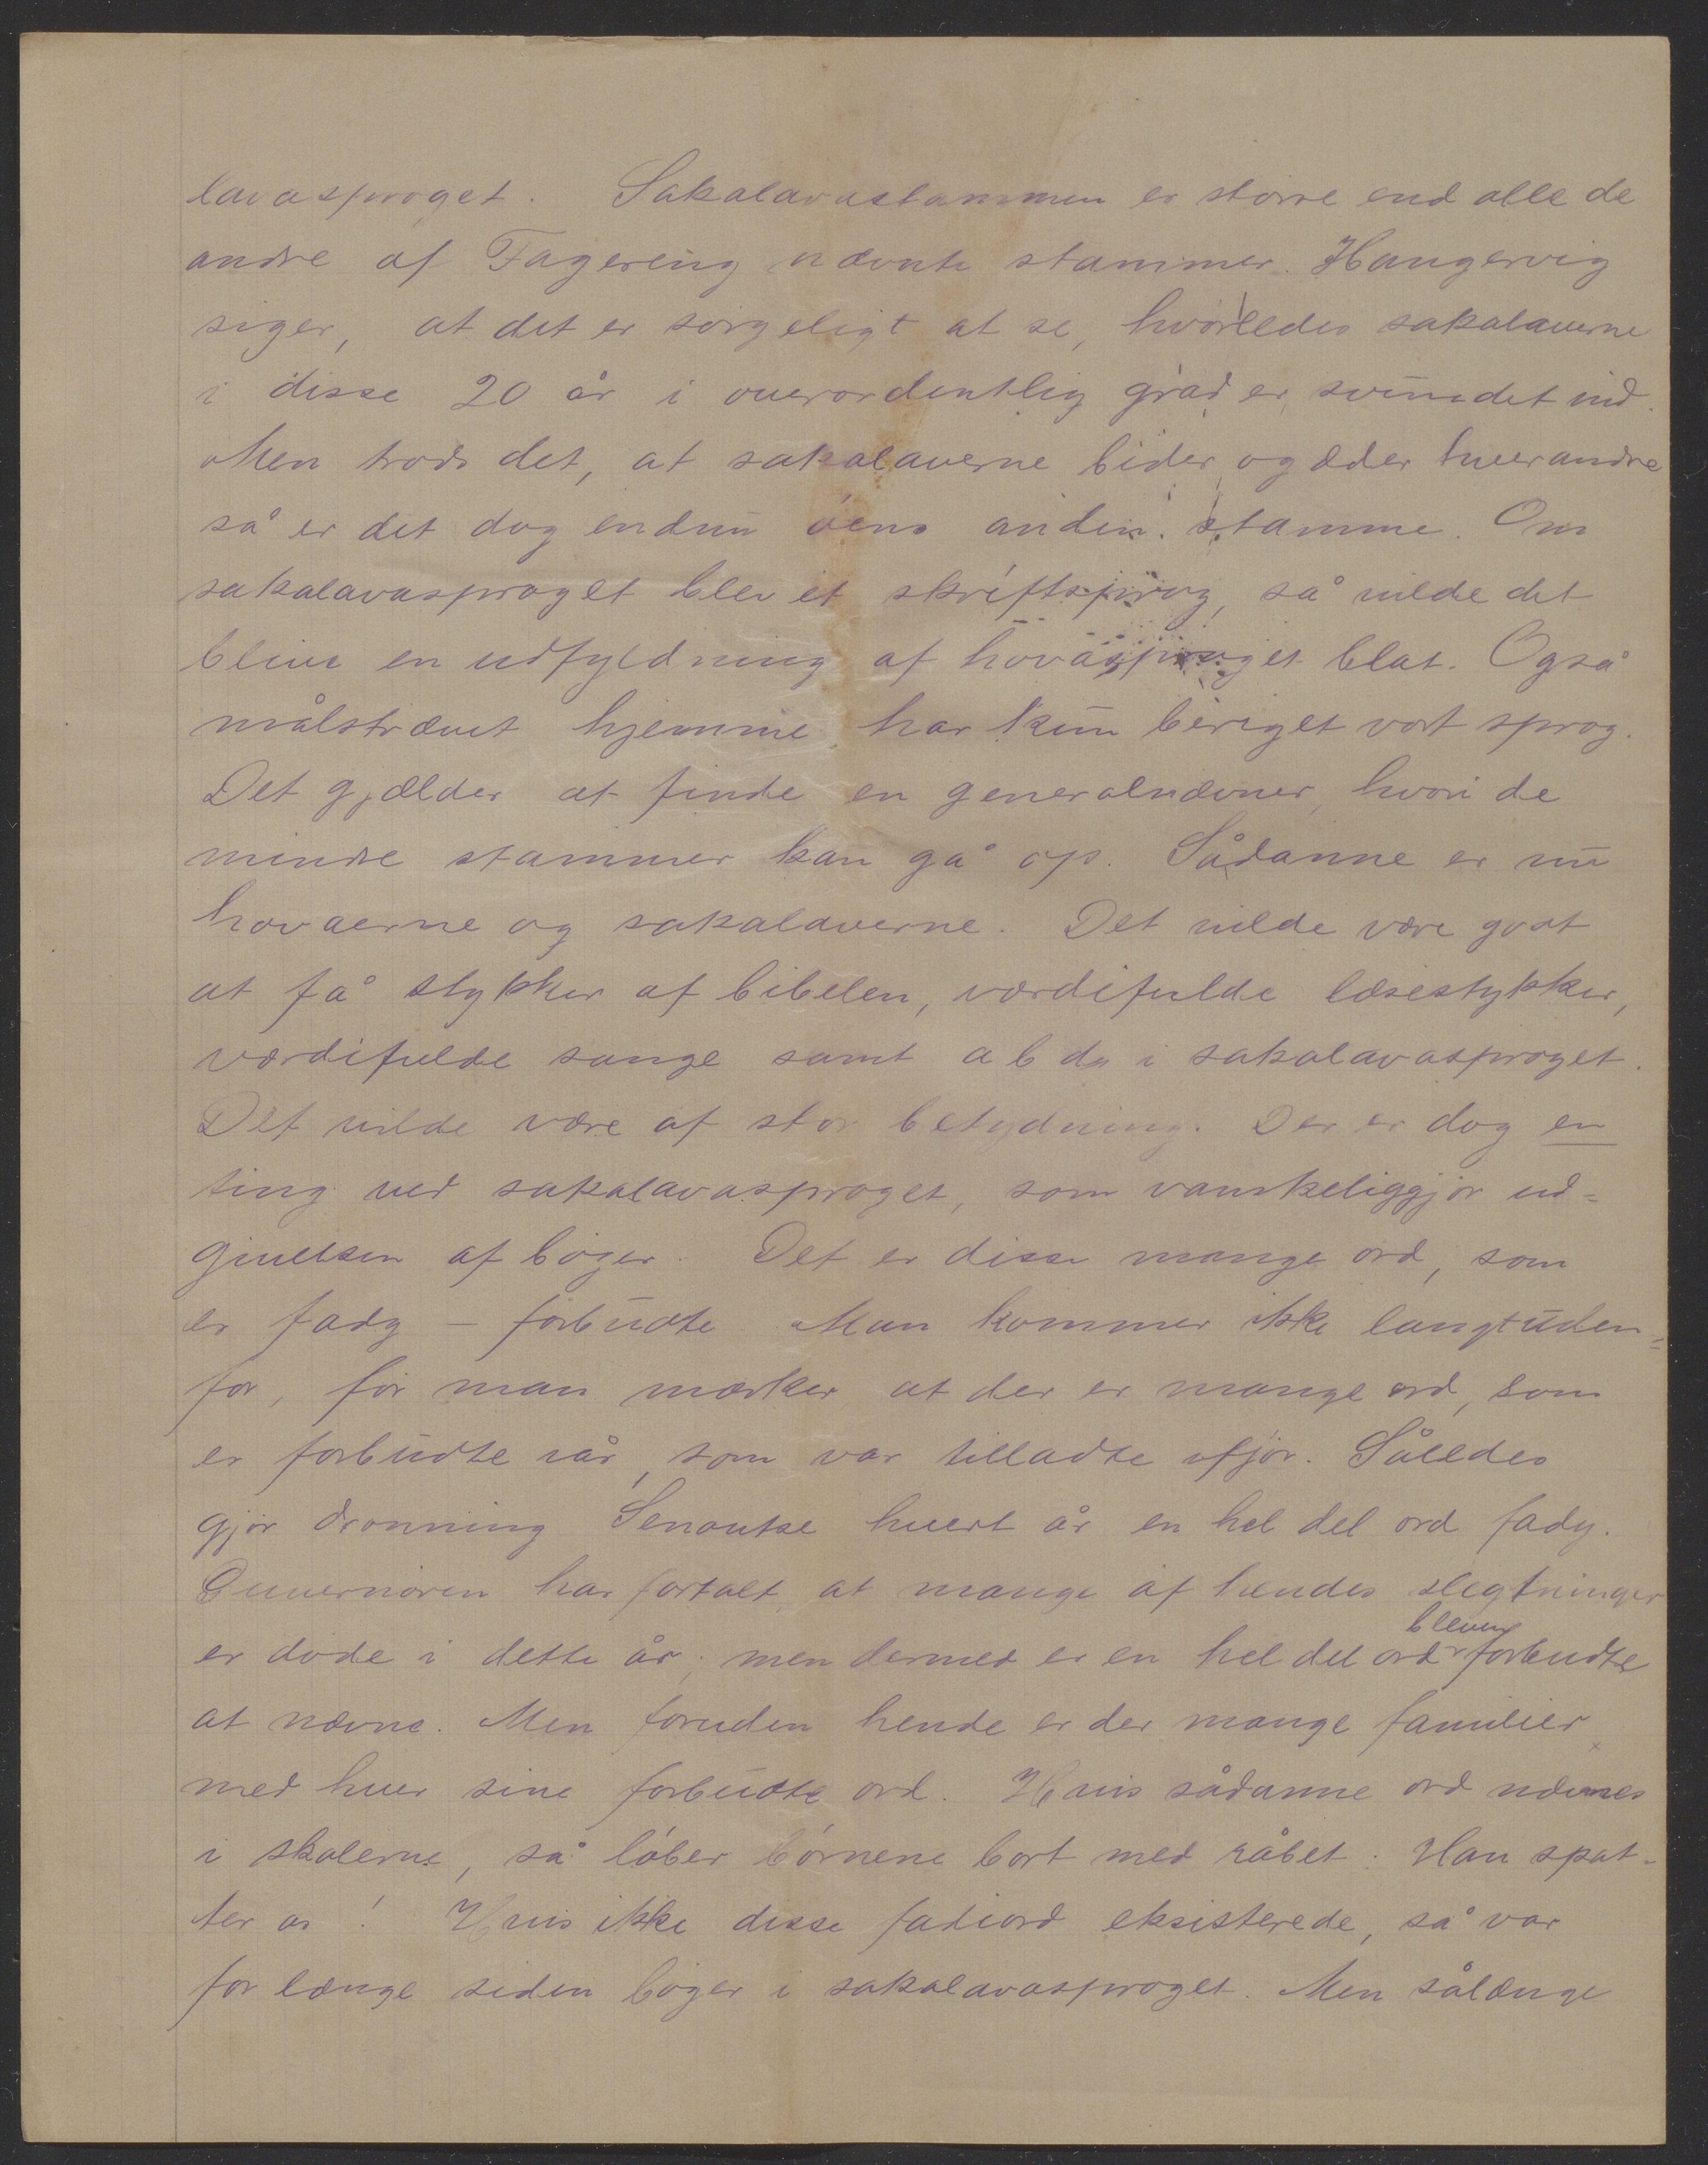 lavasproget. Sakalavastammen er større end alle de
andre af Fagereng nævnte stammer. Haugervig
siger, at det er sørgeligt at se, hvorledes sakalaverne
i disse 20 år i overordentlig grad er svundet ind.
Men trods det, at sakalaverne bider og æder hverandre
så er det dog endnu øens anden stamme. Om
sakalavasproget blev et skriftsprog, så vilde det
blive en udfyldning af hovasproget blot. Også
målstrævet hjemme har kun beriget vort sprog.
Det gjælder at finde en generalnævner, hvori de
mindre stammer kan gå op. Sådanne er nu
hovaerne og sakalaverne. Det vilde være godt
at få stykker af bibelen, værdifulde læsestykker,
værdifulde sange samt a b d i sakalavasproget.
Det vilde være af stor betydning. Der er dog en
ting ved sakalavasproget, som vanskeliggjør ud-
givelsen af bøger. Det er disse mange ord, som
er fady – forbudte. Man kommer ikke langt uden-
for, før man mærker, at der er mange ord, som
er forbudte iår, som var tilladte ifjor. Således
gjør dronning Senoutse hvert år en hel del ord fady.
Guvernøren har fortalt, at mange af hendes slegtninger
er døde i dette år; men dermed er en hel del ord blevne forbudte
at nævne. Men foruden hende er der mange familier
med hver sine forbudte ord. Hvis sådanne ord nævnes
i skolerne, så løber børnene bort med råbet: Han spot-
ter os! Hvis ikke disse fadiord eksisterede, så var
for længe siden bøger i sakalavasproget. Men sålænge